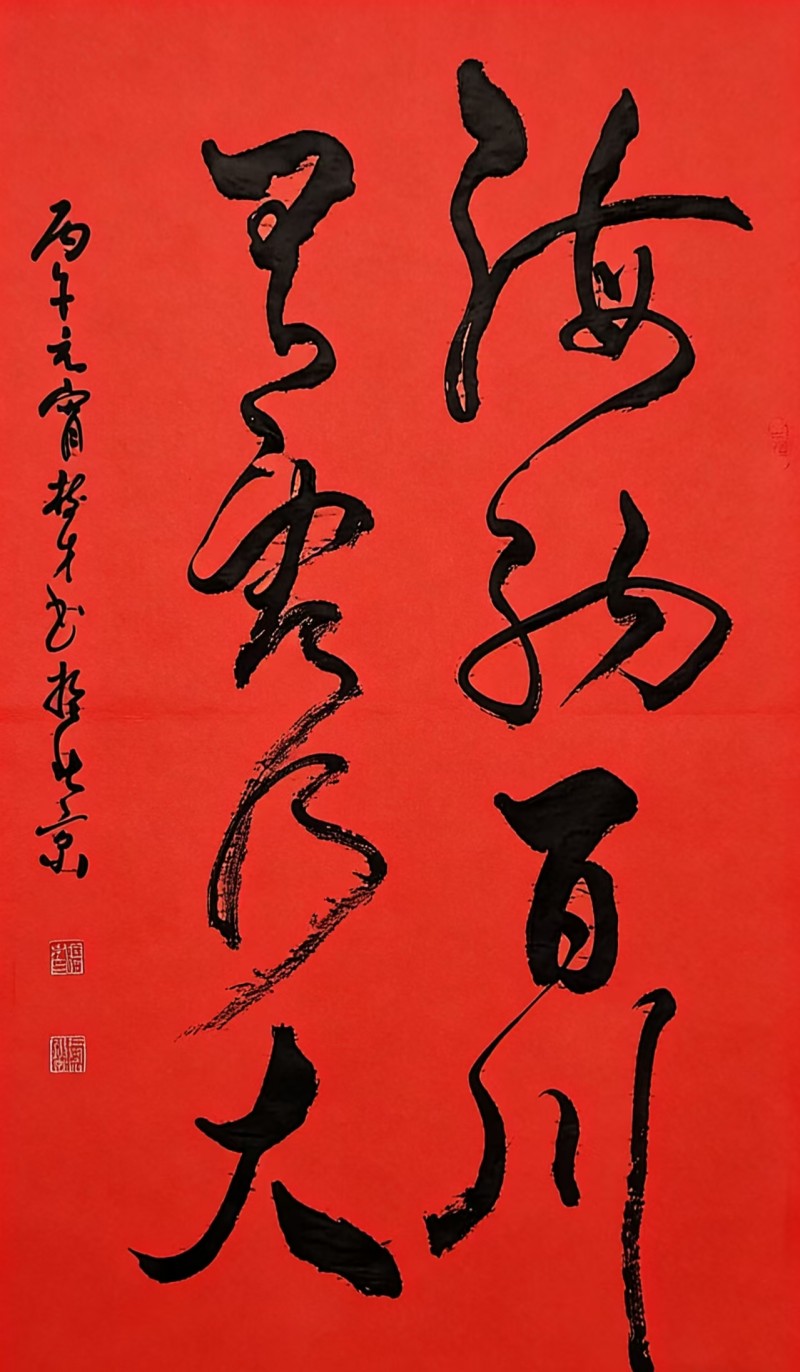 海纳百川
有容乃大
丙午元宵树才书於北京